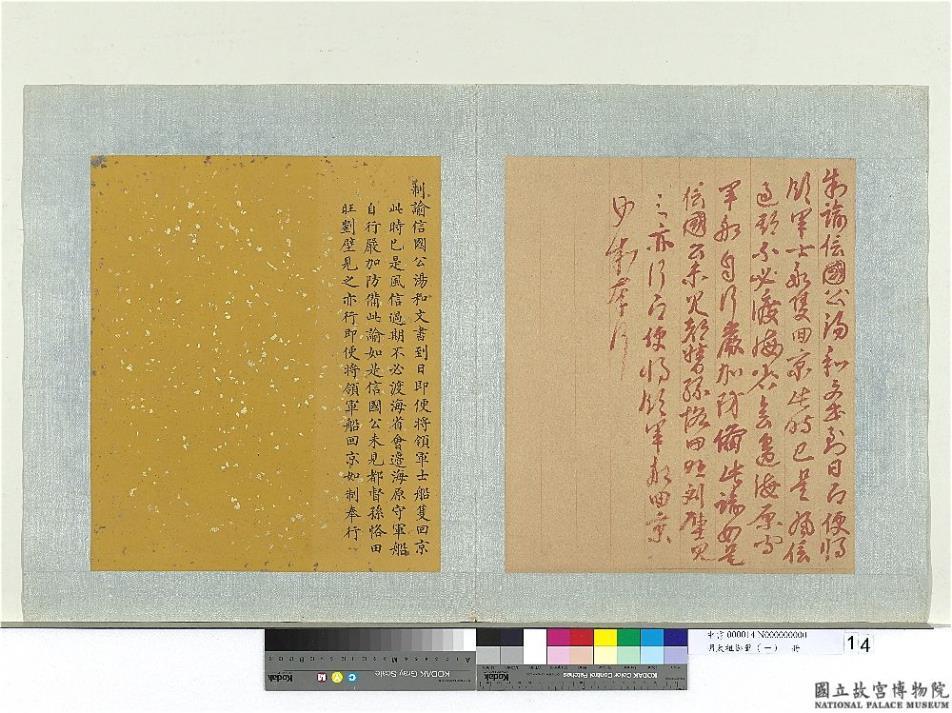 制諭信國公湯和文書到日即便將
領軍士船隻回京此時已是風信
過期不必渡海省會邊海原守
軍船自行嚴加防備此諭如是
信國公未見都督孫恪田旺劉壁見
之亦行即便將領軍船回京
如制奉行
制諭信國公湯和文書到日即便將領軍士船隻回京
此時已是風信過期不必渡海省會邊海原守軍船
自行嚴加防備此諭如是信國公未見都督孫恪田
旺劉壁見之亦行即便將領軍船回京如制奉行
KODAK Gray Scale
Kodak
C Y M
KODAK Color Control Patches
Kodak
000014 N000000000
明太祖御筆(一) 冊
14
國立故宮博物院
NATIONAL PALACE MUSEUM